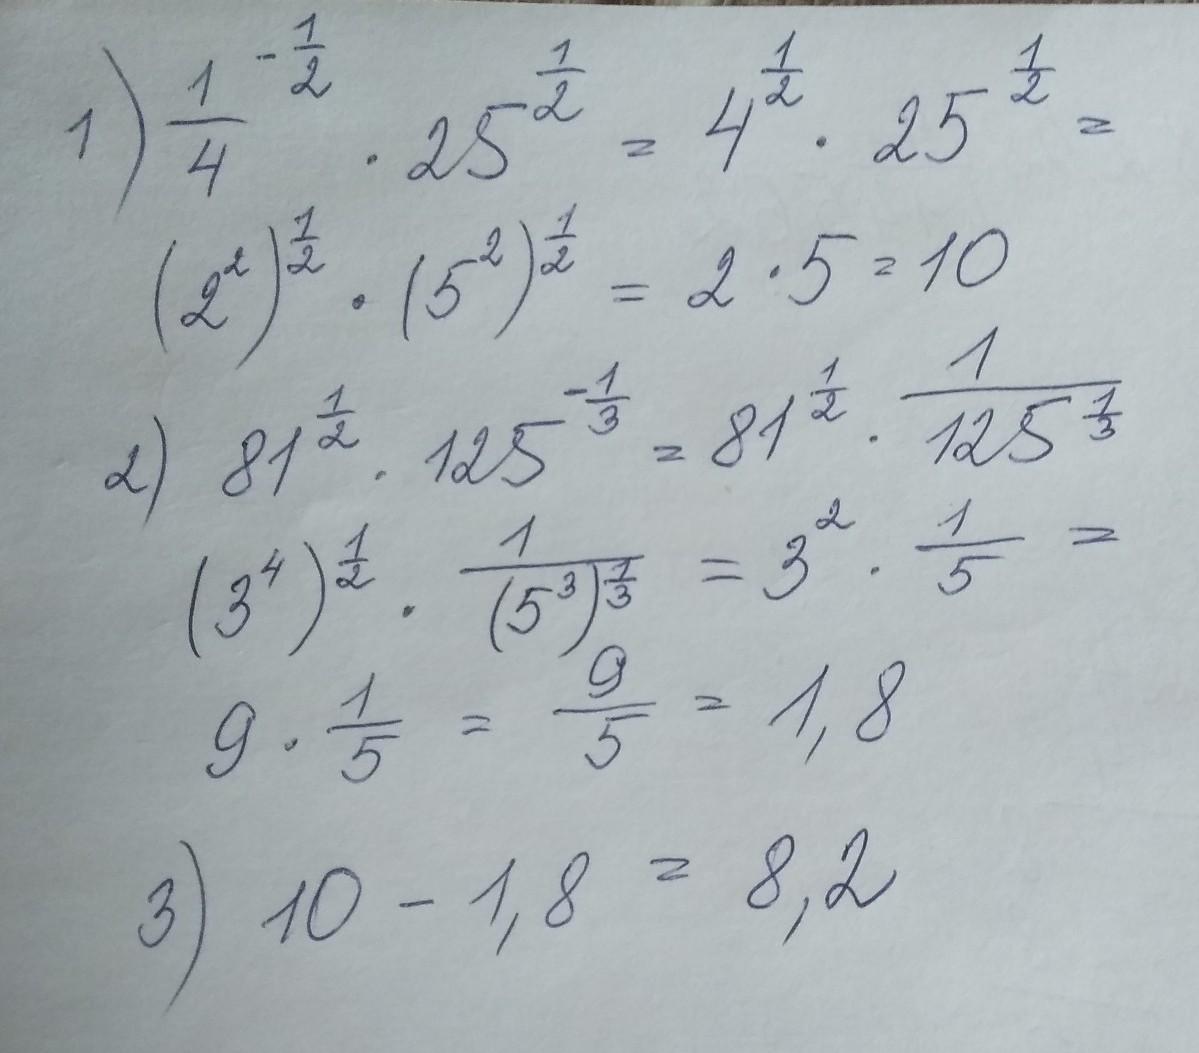 1) 1/4^(-1/2) · 25^(1/2) = 4^(1/2) · 25^(1/2) =
(2²)^(1/2) · (5²)^(1/2) = 2 · 5 = 10
2) 81^(1/2) · 125^(-1/3) = 81^(1/2) · 1/125^(1/3)
(3⁴)^(1/2) · 1/(5³)^(1/3) = 3² · 1/5 =
9 · 1/5 = 9/5 = 1,8
3) 10 - 1,8 = 8,2